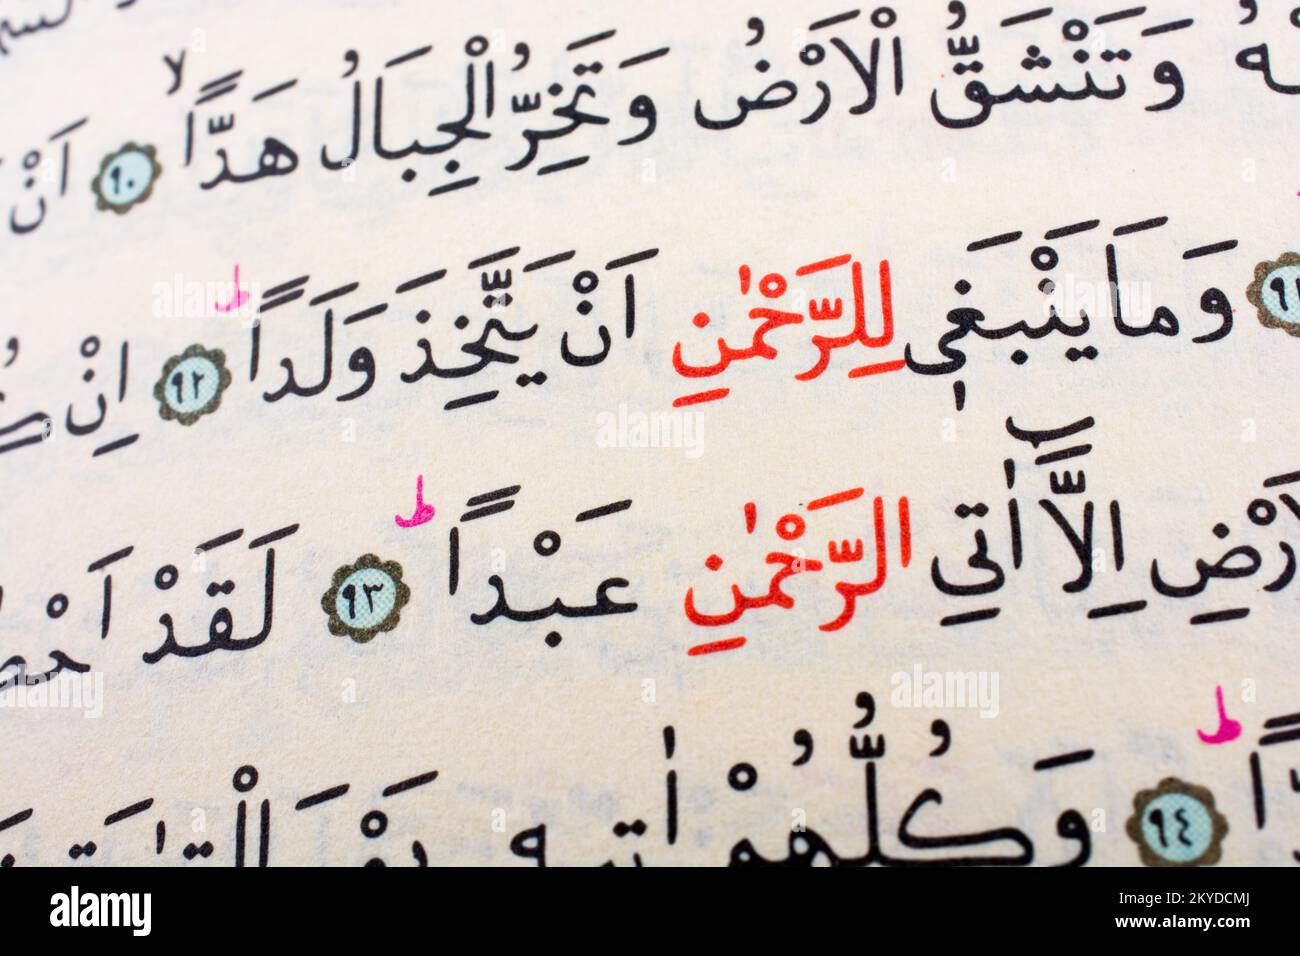 وَتَنْشَقُّ الْاَرْضُ وَتَخِرُّ الْجِبَالُ هَدًّاۙ ﴿٩٠﴾ اَنْ
وَمَا يَنْبَغٖي لِلرَّحْمٰنِ اَنْ يَتَّخِذَ وَلَدًاۜ ﴿٩٢﴾ اِنْ
اِلَّٓا اٰتِي الرَّحْمٰنِ عَبْدًاۜ ﴿٩٣﴾ لَقَدْ
﴿٩٤﴾ وَكُلُّهُمْ اٰتٖيهِ يَوْمَ
alamy
Image ID: 2KYDCMJ
www.alamy.com